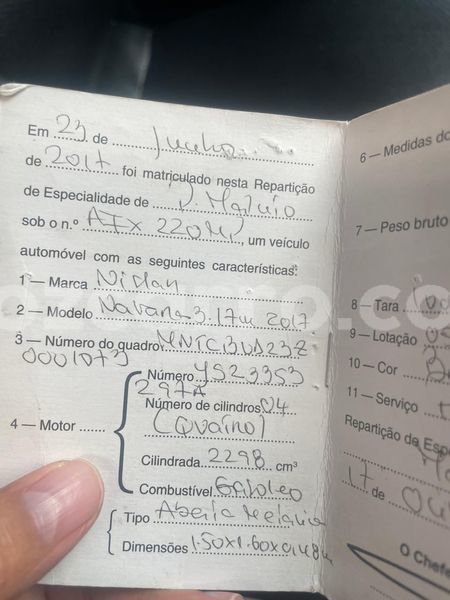 Em 23 de Junho
de 2017 foi matriculado nesta Repartição
de Especialidade de D. Maputo
sob o n.º AFX 220MP, um veículo
automóvel com as seguintes características:
1 — Marca Nissan
2 — Modelo Navana 3. 17m 2017
3 — Número do quadro MNTCBUD23Z
0001073
4 — Motor
Número YS23353
297A
Número de cilindros 04
(Quatro)
Cilindrada 2298 cm³
Combustível Gasoleo
Tipo Aberta
Dimensões
6 — Medidas do
7 — Peso bruto
8 — Tara
9 — Lotação
10 — Cor
11 — Serviço
Repartição de Espe
17 de
O Chefe